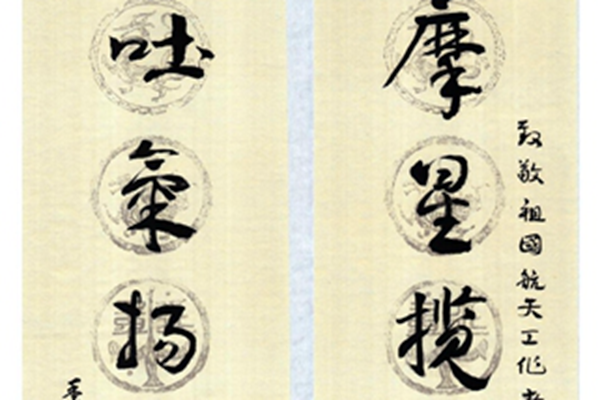 致敬祖國航天工作者
摩星攬
吐氣揚